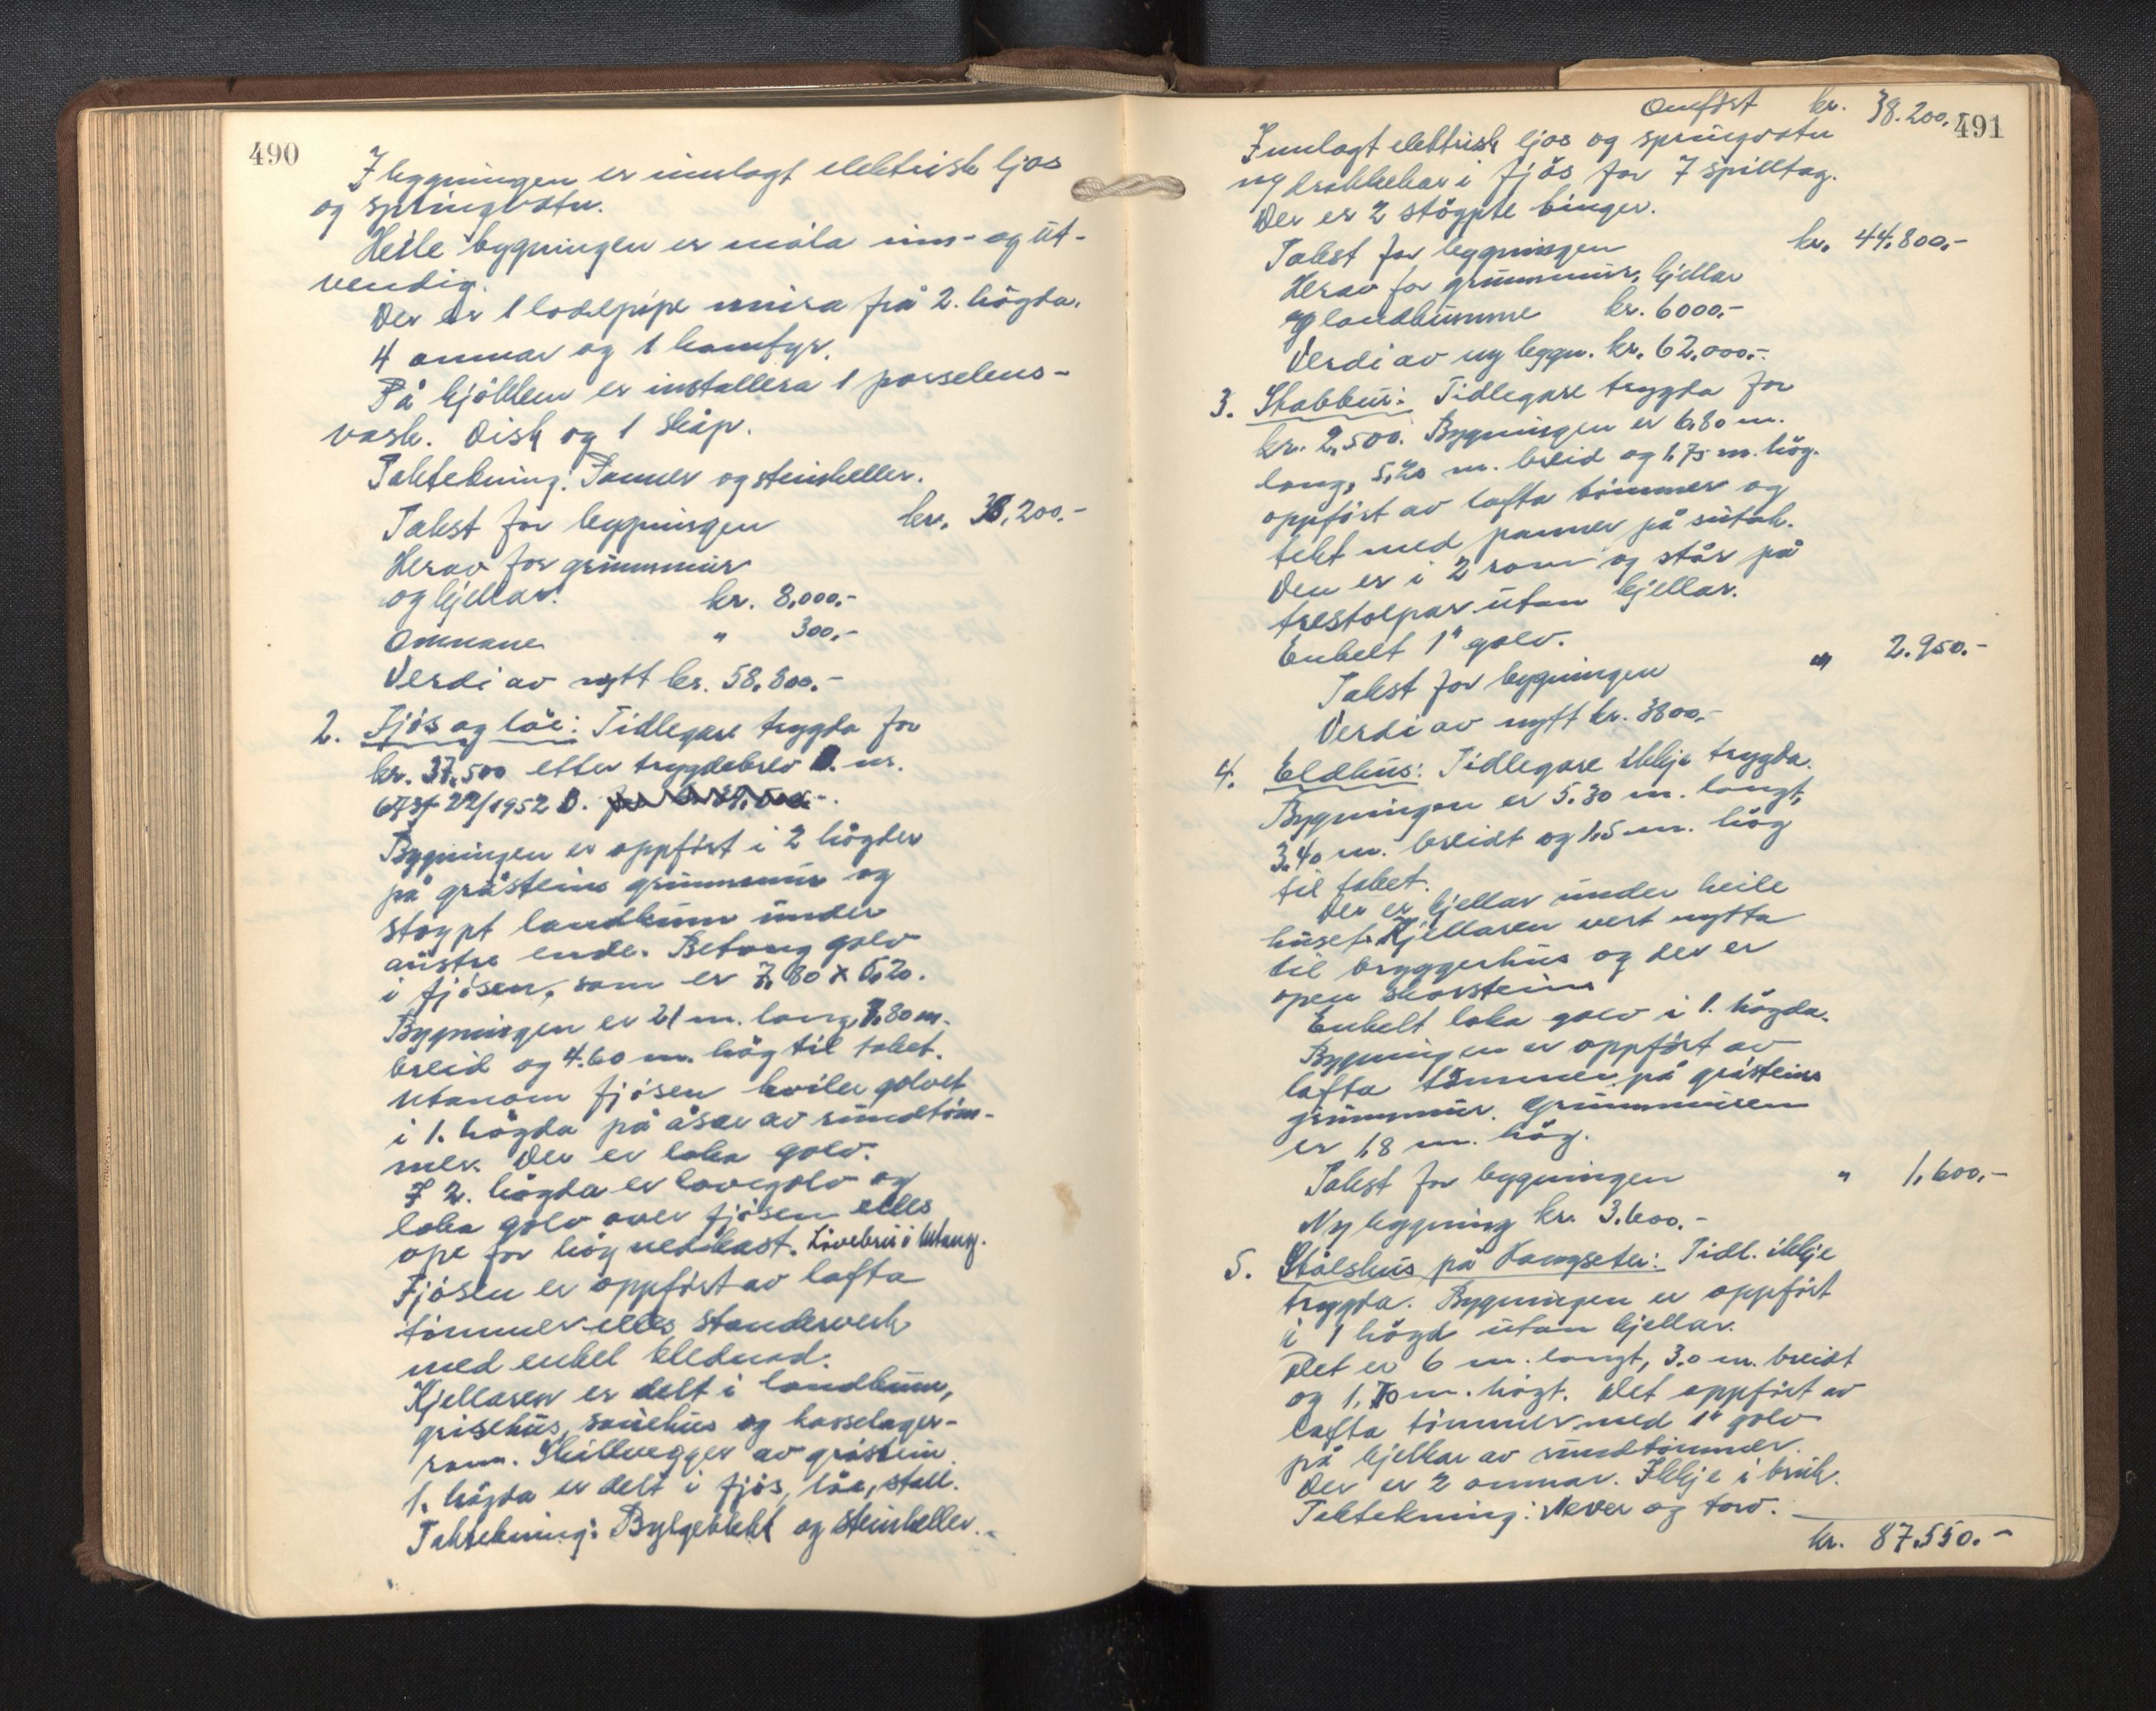 490
I bygningen er innlagt elektrisk ljos
og springvatn.
Heile bygningen er måla inn- og ut-
vendig.
Der er 1 lodelpipe mura frå 2. högda.
4 omnar og 1 komfyr.
På kjökken er installera 1 porselens-
vask. Disk og 1 skåp.
Taktekning: Panner og steinheller.
Takst for bygningen kr. 38,200.-
Herav for grunnmur
og kjellar. kr. 8,000.-
Omnane " 300,-
Verdi av nytt kr. 58,800.-
2. Fjös og löe: Tidlegare trygda for
kr. 37,500 etter trygdebrev nr.
22/1952 D.
Bygningen er oppfört i 2 högder
på gråsteins grunnmur og
stöypt landkum under
austre ende. Betong golv
i fjösen, som er 7,80 x 6,20.
Bygningen er 21 m. lang, 7.80 m.
breid og 4.60 m. hög til taket.
Utanom fjösen kviler golvet
i 1. högda på åsar av rundtöm-
mer. Der er loka golv.
I 2. högda er lovegolv og
loka golv over fjösen elles
ope for höy nedkast. Lövebru i betong.
Fjösen er oppfört av lafta
tömmer elles standerverk
med enkel kledned.
Kjellaren er delt i landkum,
grisehus, sauehus og lager-
rom. Skillvegger av gråstein.
1. högda er delt i fjös, löe, stall.
Taktekning: Bylgeblekk og steinheller.
491
Omfört kr. 38.200,-
Innlagt elektrisk ljos og springvatn
og drikkekar i fjös for 7 spilltog.
Der er 2 stöypte binger.
Takst for bygningen kr. 44.800,-
Herav for grunnmur, kjellar
og landkumme kr. 6000,-
Verdi av ny bygn. kr. 62.000,-
3. Stabbur: Tidlegare trygda for
kr. 2,500. Bygningen er 6,80 m.
lang, 5,20 m. breid og 1,75 m. hög.
oppfört av lafta tömmer og
tekt med panner på sutak.
Den er i 2 rom og står på
trestolpar utan kjellar.
Enkelt 1" golv.
Takst for bygningen " 2.950.-
Verdi av nytt kr. 3800,-
4. Eldhus: Tidlegare ikkje trygda.
Bygningen er 5.30 m. langt,
3,40 m. breidt og 1,5 m. hög
til taket.
Der er kjellar under heile
huset. Kjellaren vert nytta
til bryggerhus og der er
open skorstein
Enkelt loka golv i 1. högda.
Bygningen er oppfört av
lafta tömmer på gråsteins
grunnmur. Grunnmuren
er 1,8 m. hög.
Takst for bygningen " 1,600,-
Ny bygning kr. 3.600.-
5. Stölshus på Vangseter: Tidl. ikkje
trygda. Bygningen er oppfört
i 1 högd utan kjellar.
Det er 6 m. langt, 3.0 m. breidt
og 1,70 m. högt. Det oppfört av
lafta tömmer med 1" golv
på kjelkar av rundtömmer.
Der er 2 omnar. Ikkje i bruk.
Taktekning: Never og torv.
kr. 87.550.-